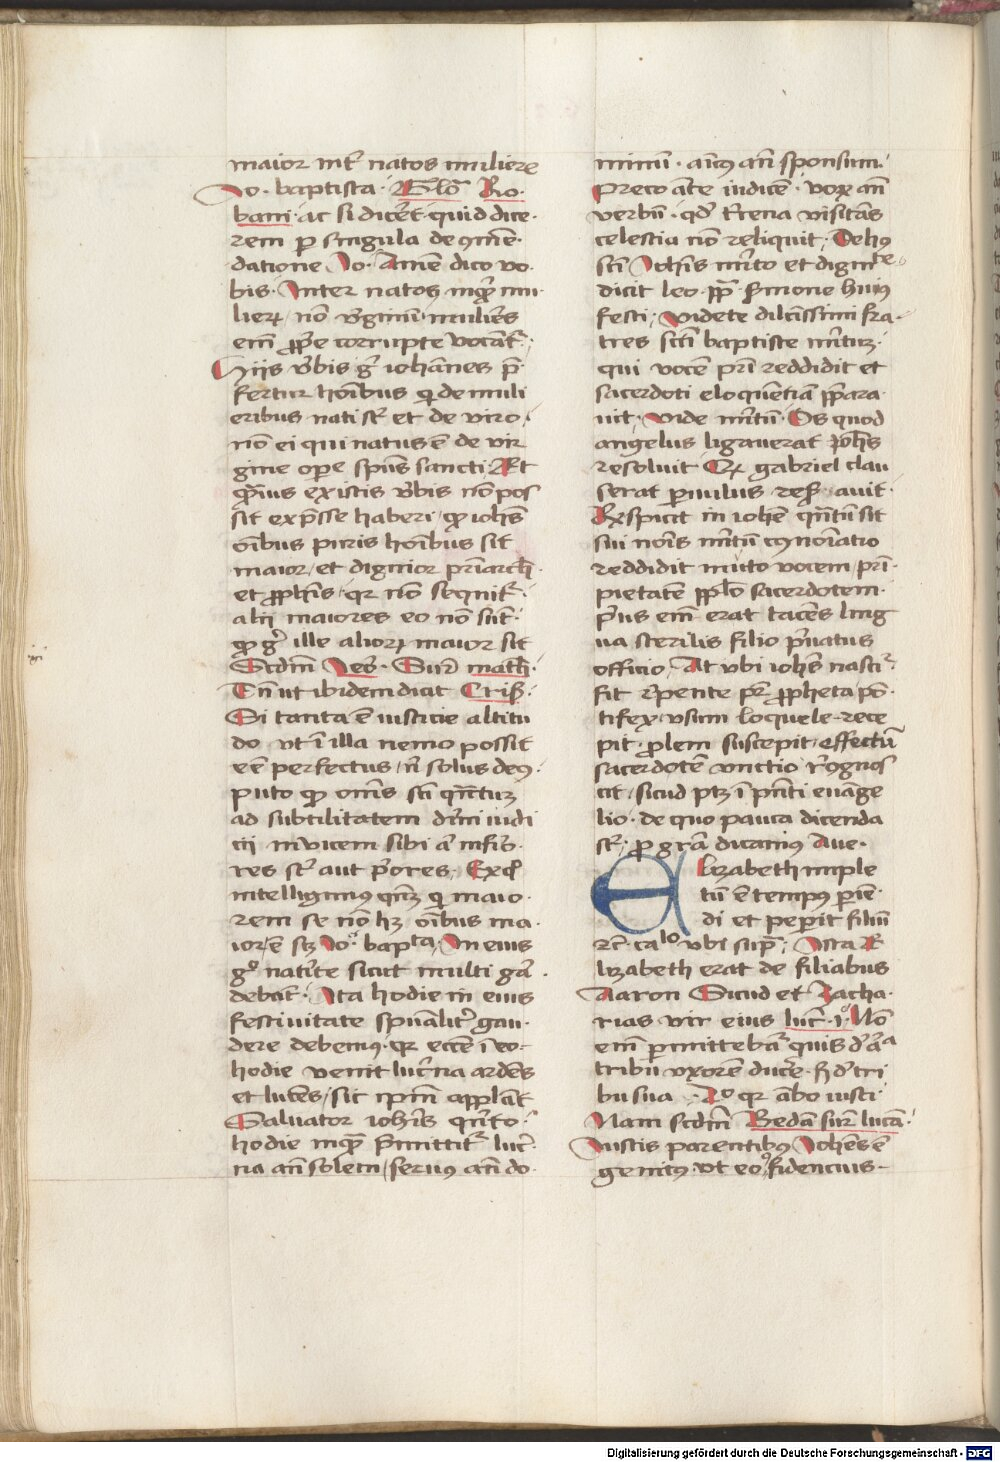 maior int̄ natos muliere
Jo. baptista. Glō Ro
bani. ac si dicēt. quid dice
rem p singula de ɔmē
datione Jo. Amē dico vo
bis. Inter natos inq̄ mu
lieꝝ nō v̓ginū. mulieꝛs
em̄ ꝓp̄e corrupte vocāt̄.
Hijs v̓bis gͥ ioh̄annes p̄
fertur hoībus qͥ de muli
eribus nati sͭ et de viro
nō ei qui natus ē de vir
gine op̄e sp̄us sancti Et
q̄uis ex istis v̓bis nō pos
sit exp̄sse haberi, ꝙ ioh̄es
oībus puris hoībus sit
maior, et dignior pr̄iarch̄
et ꝓph̄is, qꝛ nō sequit̄.
alij maiores eo nō sūt.
ꝙ gͥ ille alioꝝ maior sit
Scd̄m Jero. Sup̄ math̄.
Tn̄ ut ibidem dicit Cris̄.
Si tanta ē iusticie altitu
do vt ī illa nemo possit
eē perfectus, n̄ solus deꝰ.
puto ꝙ om̄s sc̄i qn̄tuꝫ
ad subtilitatem diuī iudi
cij invicem sibi aī inferi
res sͭ aut p̄ores, Ex qͦ
intelligimus qm̄ qͥ maio
rem se nō hꝫ oībus ma
iorē sꝫ Jo. bapᵗᵃ, In eius
gͦ natīte sicut multi gā
debāt. Ita hodie in eius
festiuitate sp̄ualit̓ gau
dere debemꝰ. qꝛ ecce ī eo
hodie venit luc̄na ardēs
et lucēs, sic ip̄m appllāt
Saluator ioh̄is qn̄to.
hodie inq̄ p̄mittit̄ luc̓
na an̄ solem, seruꝰ an̄ do
minū. amicꝰ an̄ sponsum.
preco ante iudicē. vox an̄
verbū. qd̓ terrena visitās
celestia nō reliquit, De hꝰ
sc̄i Joh̄is m̄ito et dignitᵗᵉ
dicit leo. pp̄. s̓mone huiꝰ
festi, Videte dilc̄issimi fra
tres sc̄i baptiste m̄ituꝫ.
qui vocē pr̄i reddidit et
sacerdoti eloquentiā p̄para
uit. vide m̄itū. Os quod
angelus ligauerat Joh̄es
resoluit Qd̓ gabriel clau
serat puulus res̓auit.
Respicit in ioh̄e qn̄tū sit
sui nois m̄itū ɔnoīatio
reddidit muto vocem, pr̄i
pietatē ppl̄o sacerdotem.
P̓us em̄ erat tacēs ling
ua sterilis filio p̓uatus
officio. At vbi ioh̄es nascit̄.
fit repente pr̄ ꝓpheta, pō
tifex, vsum loquele rece
pit. ꝓlem suscepit, effectū
sacerdotē vnctio r̓ɔgnos
cit, sicud ptꝫ ī pn̄ti euāge
lio. de quo pauca dicenda
sͭ, ꝓ grā dicamꝰ Aue.
Elizabeth imple
tū ē tempꝰ pīē
di et pep̄it filiū
rc̄. caˡᵒ vbi sup̄, Ista E
lizabeth erat de filiabus
Aaron Sicud et Zacha
rias vir eius luc̄. i Nō
em̄ p̄mittebāt̄ quis d̓ aͣ
tribu vxorē duc̓e. s̓ d̓ tri
bu sua. 2ͦ qꝛ ābo iusti
Nam scd̄m Bedā sup̄ lucā.
Iustis parentibꝰ Joh̄es ē
genitꝰ. vt eoͦ fidencius
Digitalisierung gefördert durch die Deutsche Forschungsgemeinschaft - DFG